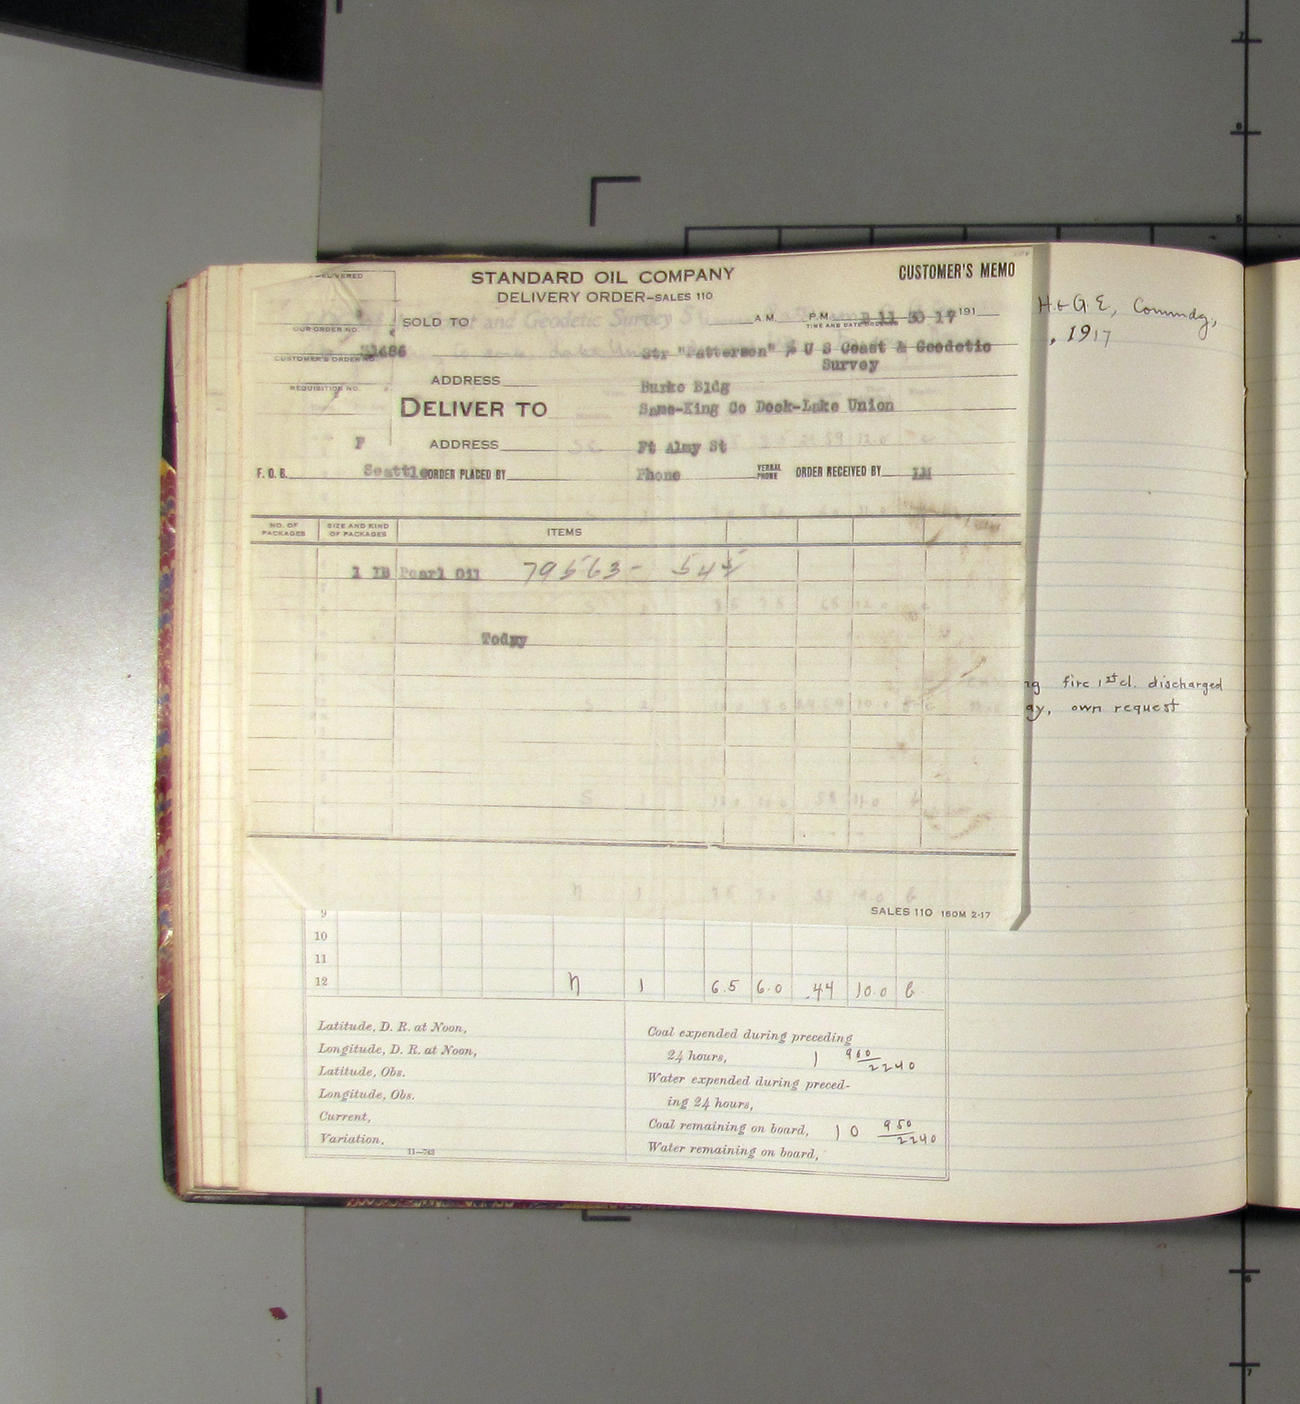 DELIVERED
STANDARD OIL COMPANY
CUSTOMER'S MEMO
DELIVERY ORDER—SALES 110
OUR ORDER NO.
SOLD TO
A M
P M
11 30 17 191
TIME AND DATE ORDERED
H. & G. E, Commdg,
, 1917
31486
CUSTOMER'S ORDER NO.
Str "Patterson" % U S Coast & Geodetic
Survey
REQUISITION NO.
ADDRESS
Burke Bldg
DELIVER TO
Same-King Co Dock-Lake Union
F
ADDRESS
Ft Almy St
F. O. B.
Seattle
ORDER PLACED BY
Phone
VERBAL
PHONE
ORDER RECEIVED BY
LM
NO. OF PACKAGES
SIZE AND KIND OF PACKAGES
ITEMS
1 IB Pearl Oil 79563 -
Today
fire 1st cl. discharged
own request
SALES 110 150M 2-17
9
10
11
12 N 1 6.5 6.0 .44 10.0 b
Latitude, D. R. at Noon,
Longitude, D. R. at Noon,
Latitude, Obs.
Longitude, Obs.
Current,
Variation,
11—743
Coal expended during preceding
24 hours, 1 960/2240
Water expended during preced-
ing 24 hours,
Coal remaining on board, 10 950/2240
Water remaining on board,